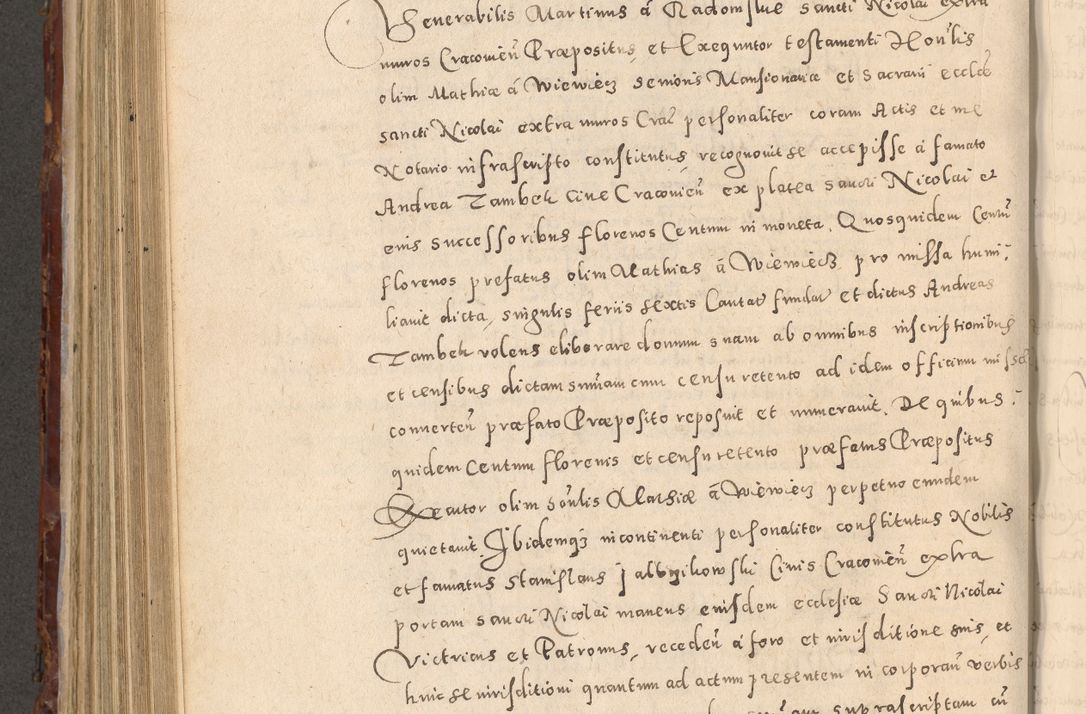 Venerabilis Martinus á Radomskie sancti Nicolai extra
muros Cracovień Præpositus et Exequutor testamenti Hon̄lis
olim Mathiæ á Wiewiecz senioris Mansionariæ et Sacrarii ecclæ
sancti Nicolai extra muros Cra͞c personaliter coram Actis et me
Notario infrascripto constitutus recognovit se accepisse á famato
Andrea Tambek Cive Cracovień ex platea Sancti Nicolai et
eius successoribus florenos Centum in moneta. Quosquidem Centũ
florenos prefatus olim Mathias á Wiewiecz pro missa humi-
liavit dicta, singulis feriis sextis Cantař fundař et dictus Andreas
Tambek volens eliberare domum suam ab omnibus inscriptionibus
et censibus dictam sum̄am cum censu retento ad idem officium missæ
converteñ præfato Præposito reposuit et numeravit. De quibus-
quidem Centum florenis et censu retento præfatus Præpositus
Executor olim hon̄lis Mathiæ á Wiewiecz perpetuo eundem
quietavit. Ibidemq3 incontinenti personaliter constitutus Nobilis
et famatus Stanislaus Jalbrzikowski Civis Cracovień extra
portam Sancti Nicolai manens eiusdem ecclesiæ Sancti Nicolai
Victricus et Patronus, recedeñ á foro et iurisditione suis, et
huic se iurisditioni quantum ad actum presentem incorporañ verbis
suprascriptam cũ